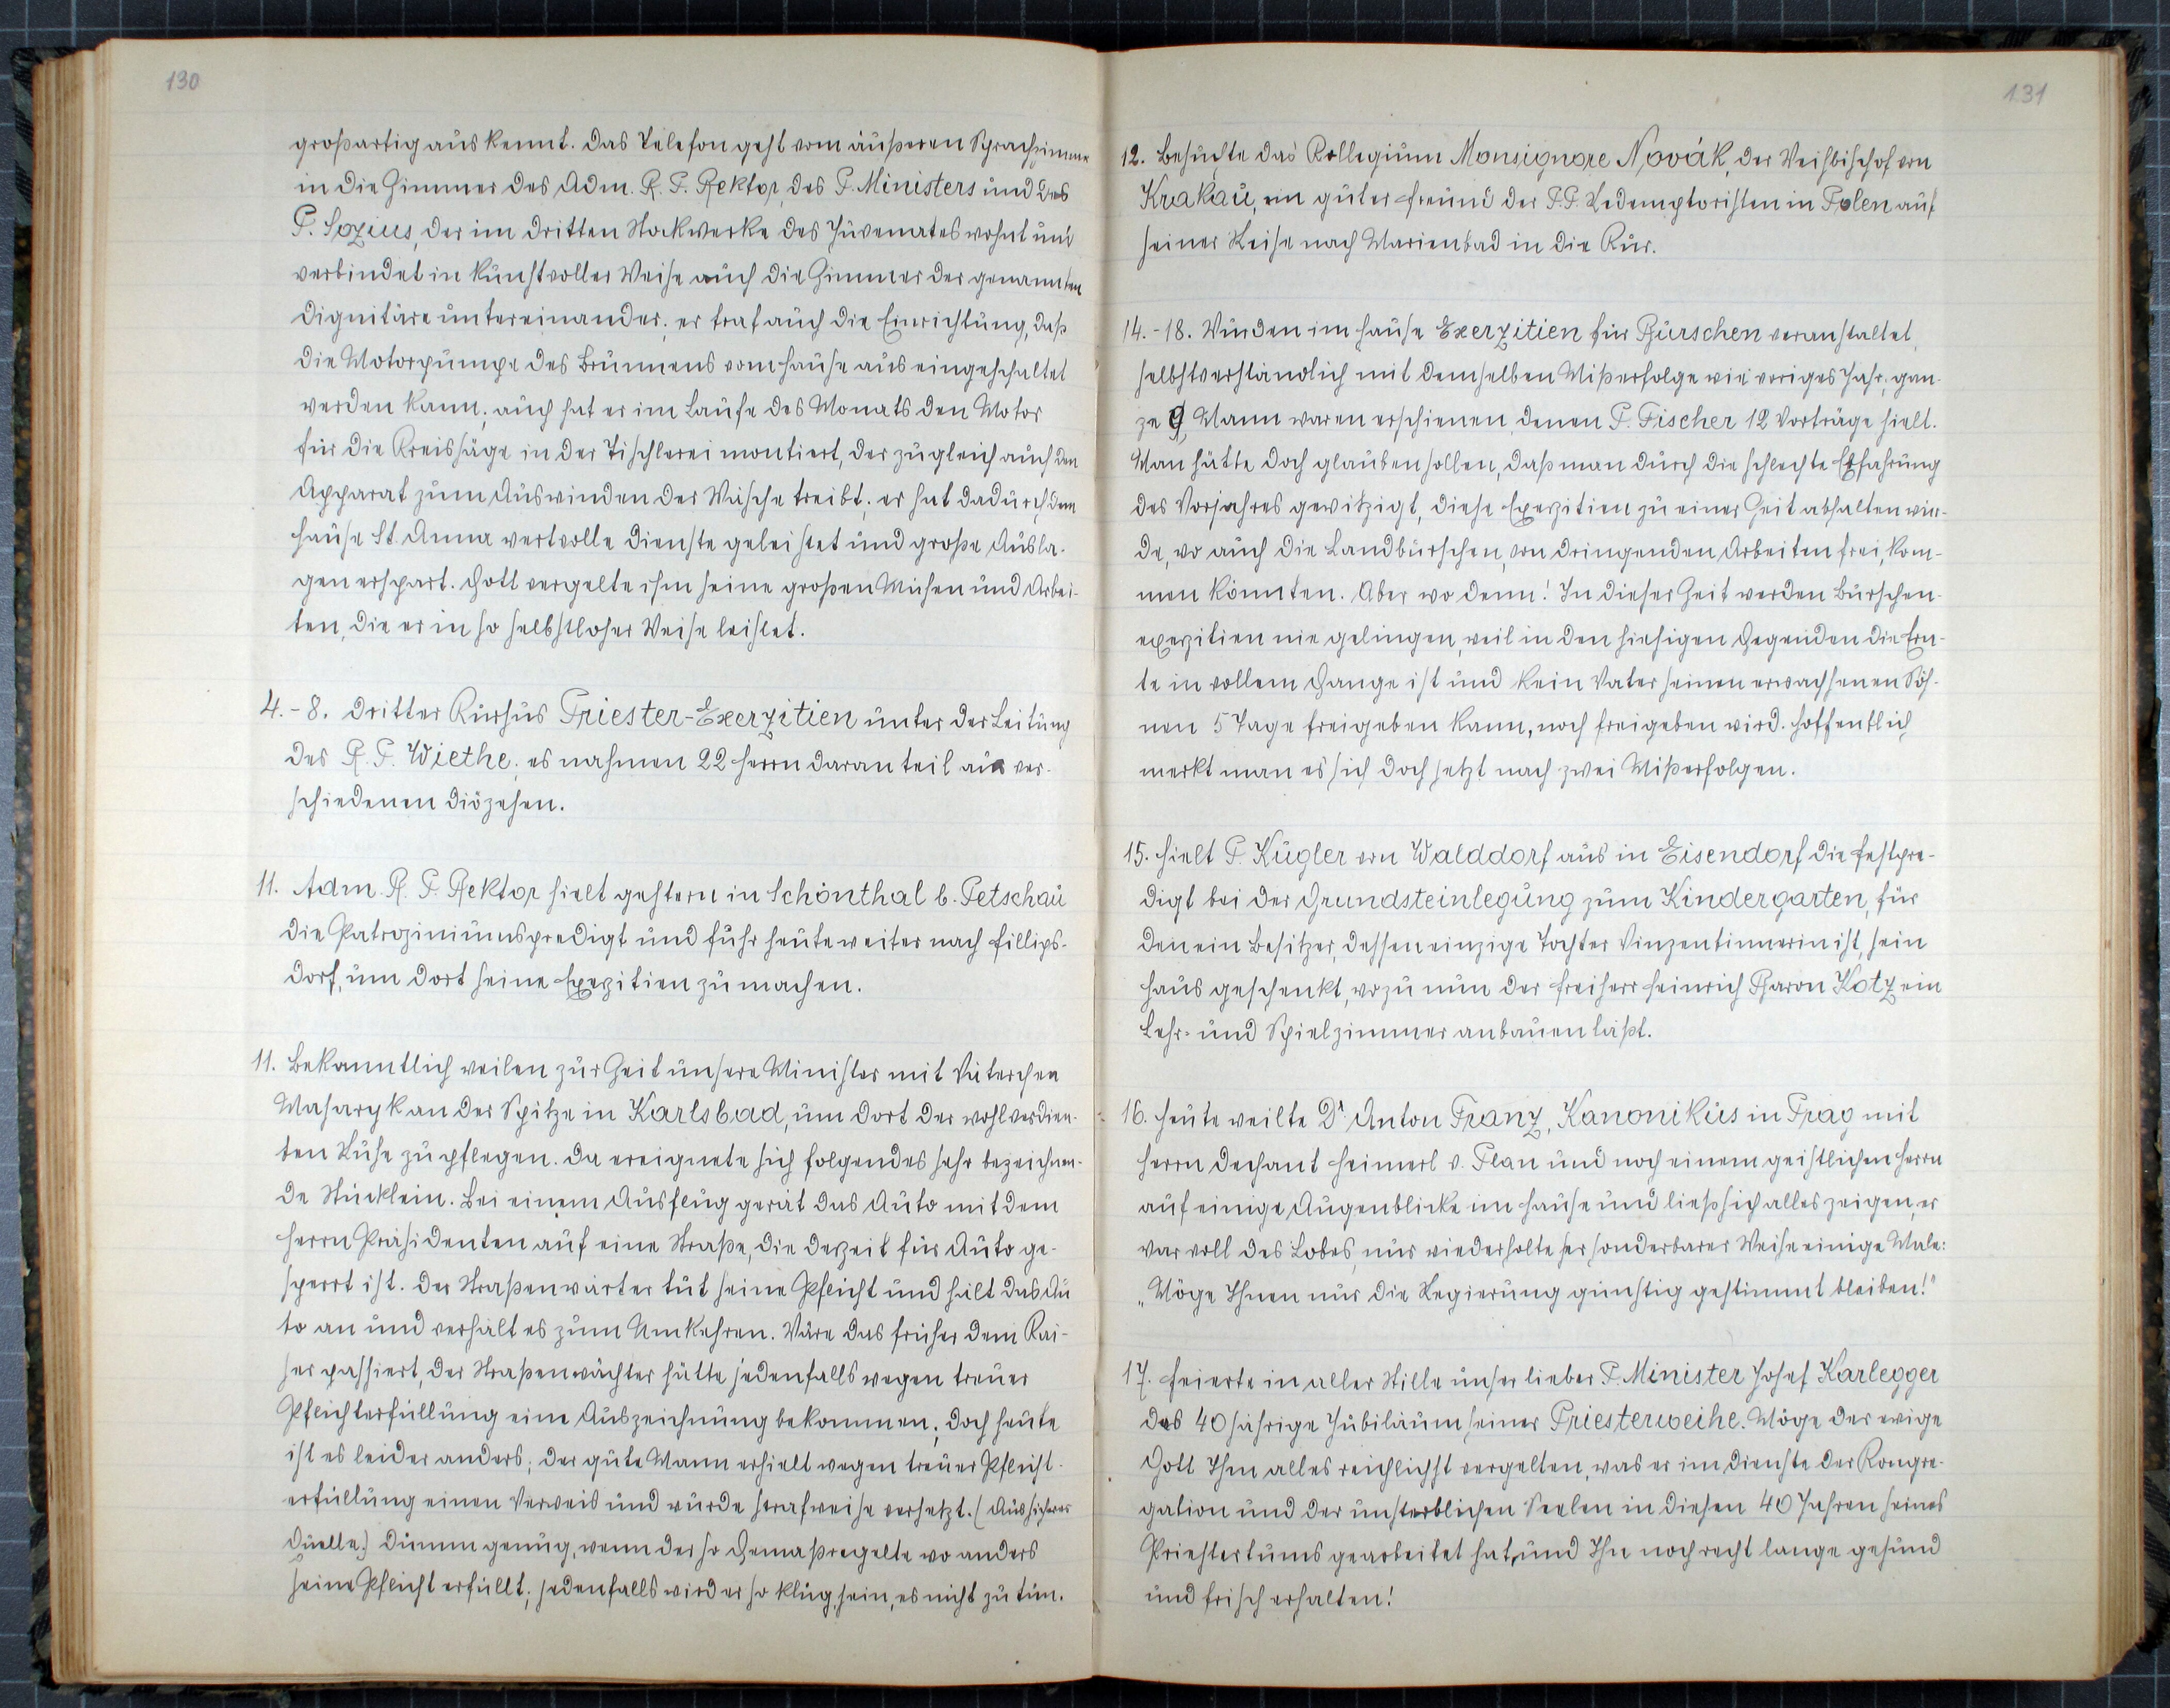 130
großartig auskennt. Das Telefon geht vom äußeren Sprachzimmer
in die Zimmer des Adm. R. P. Rektor, des P. Ministers und des
P. Sozius, der im dritten Stockwerke des Juvenates wohnt und
verbindet in kunstvoller Weise auch die Zimmer der genannten
Dignitäre untereinander; er traf auch die Einrichtung, daß
die Motorpumpe des Brunnens vom Hause aus eingeschaltet
werden kann; auch hat er im Laufe des Monats den Motor
für die Kreissäge in der Tischlerei montiert, der zugleich auch den
Apparat zum Auswinden der Wäsche treibt; er hat dadurch dem
Hause St. Anna wertvolle Dienste geleistet und große Ausla-
gen erspart. Gott vergelte ihm seine großen Mühen und Arbei-
ten, die er in so selbstloser Weise leistet.
4.-8. Dritter Kursus Priester-Exerzitien unter der Leitung
des R. P. Wiethe; es nahmen 22 Herrn daran teil aus ver-
schiedenen Diözesen.
11. Adm. R. P. Rektor hielt gestern in Schönthal b. Petschau
die Patroziniumspredigt und fuhr heute weiter nach Fillips-
dorf, um dort seine Exerzitien zu machen.
11. Bekanntlich weilen zur Zeit unsere Minister mit Väterchen
Masaryk an der Spitze in Karlsbad, um dort der wohlverdien-
ten Ruhe zu pflegen. Da ereignete sich folgendes sehr bezeichnen-
de Stücklein. Bei einem Ausflug gerät das Auto mit dem
Herrn Präsidenten auf eine Straße, die derzeit für Auto ge-
sperrt ist. Der Straßenwärter tut seine Pflicht und hält das Au
to an und verhält es zum Umkehren. Wäre das früher dem Kai-
ser passiert, der Straßenwächter hätte jedenfalls wegen treuer
Pflichterfüllung eine Auszeichnung bekommen; doch heute
ist es leider anders; der gute Mann erhielt wegen treuer Pflicht-
erfüllung einen Verweis und wurde strafweise versetzt. (Aus sicherer
Quelle.) Dumm genug, wenn der so Gemaßregelte wo anders
seine Pflicht erfüllt; jedenfalls wird er so klug sein, es nicht zu tun.
131
12. Besuchte das Kollegium Monsignore Novák, der Weihbischof von
Krakau, ein guter Freund der P.P. Redemptoristen in Polen auf
seiner Reise nach Marienbad in die Kur.
14.-18. Wurden im Hause Exerzitien für Burschen veranstaltet,
selbstverständlich mit demselben Mißerfolge wie voriges Jahr; gan-
ze 9 Mann waren erschienen, denen P. Fischer 12 Vorträge hielt.
Man hätte doch glauben sollen, daß man durch die schlechte Erfahrung
des Vorjahres gewitzigt, diese Exerzitien zu einer Zeit abhalten wür-
de, wo auch die Landburschen, von dringenden Arbeiten frei, kom-
men könnten. Aber wo denn! In dieser Zeit werden Burschen-
exerzitien nie gelingen, weil in den hiesigen Gegenden die Ern-
te in vollem Gange ist und kein Vater seinen erwachsenen Söh-
nen 5 Tage freigeben kann, noch freigeben wird. Hoffentlich
merkt man es sich doch jetzt nach zwei Mißerfolgen.
15. Hielt P. Kugler von Walddorf aus in Eisendorf die Festpre-
digt bei der Grundsteinlegung zum Kindergarten, für
den ein Besitzer, dessen einzige Tochter Vinzentinnerin ist, sein
Haus geschenkt, wozu nun der Freiherr Heinrich Baron Kotz ein
Lehr- und Spielzimmer anbauen läßt.
16. Heute weilte Dr. Anton Franz, Kanonikus in Prag mit
Herrn Dechant Heimerl v. Plan und noch einem geistlichen Herrn
auf einige Augenblicke im Hause und ließ sich alles zeigen, er
war voll des Lobes, nur wiederholte er sonderbarer Weise einige Male:
„Möge Ihnen nur die Regierung günstig gestimmt bleiben!"
17. Feierte in aller Stille unser lieber P. Minister Josef Karlegger
das 40 jährige Jubiläum seiner Priesterweihe. Möge der ewige
Gott Ihm alles reichlichst vergelten, was er im Dienste der Kongre-
gation und der unsterblichen Seelen in diesen 40 Jahren seines
Priestertums gearbeitet hat, und Ihn noch recht lange gesund
und frisch erhalten!